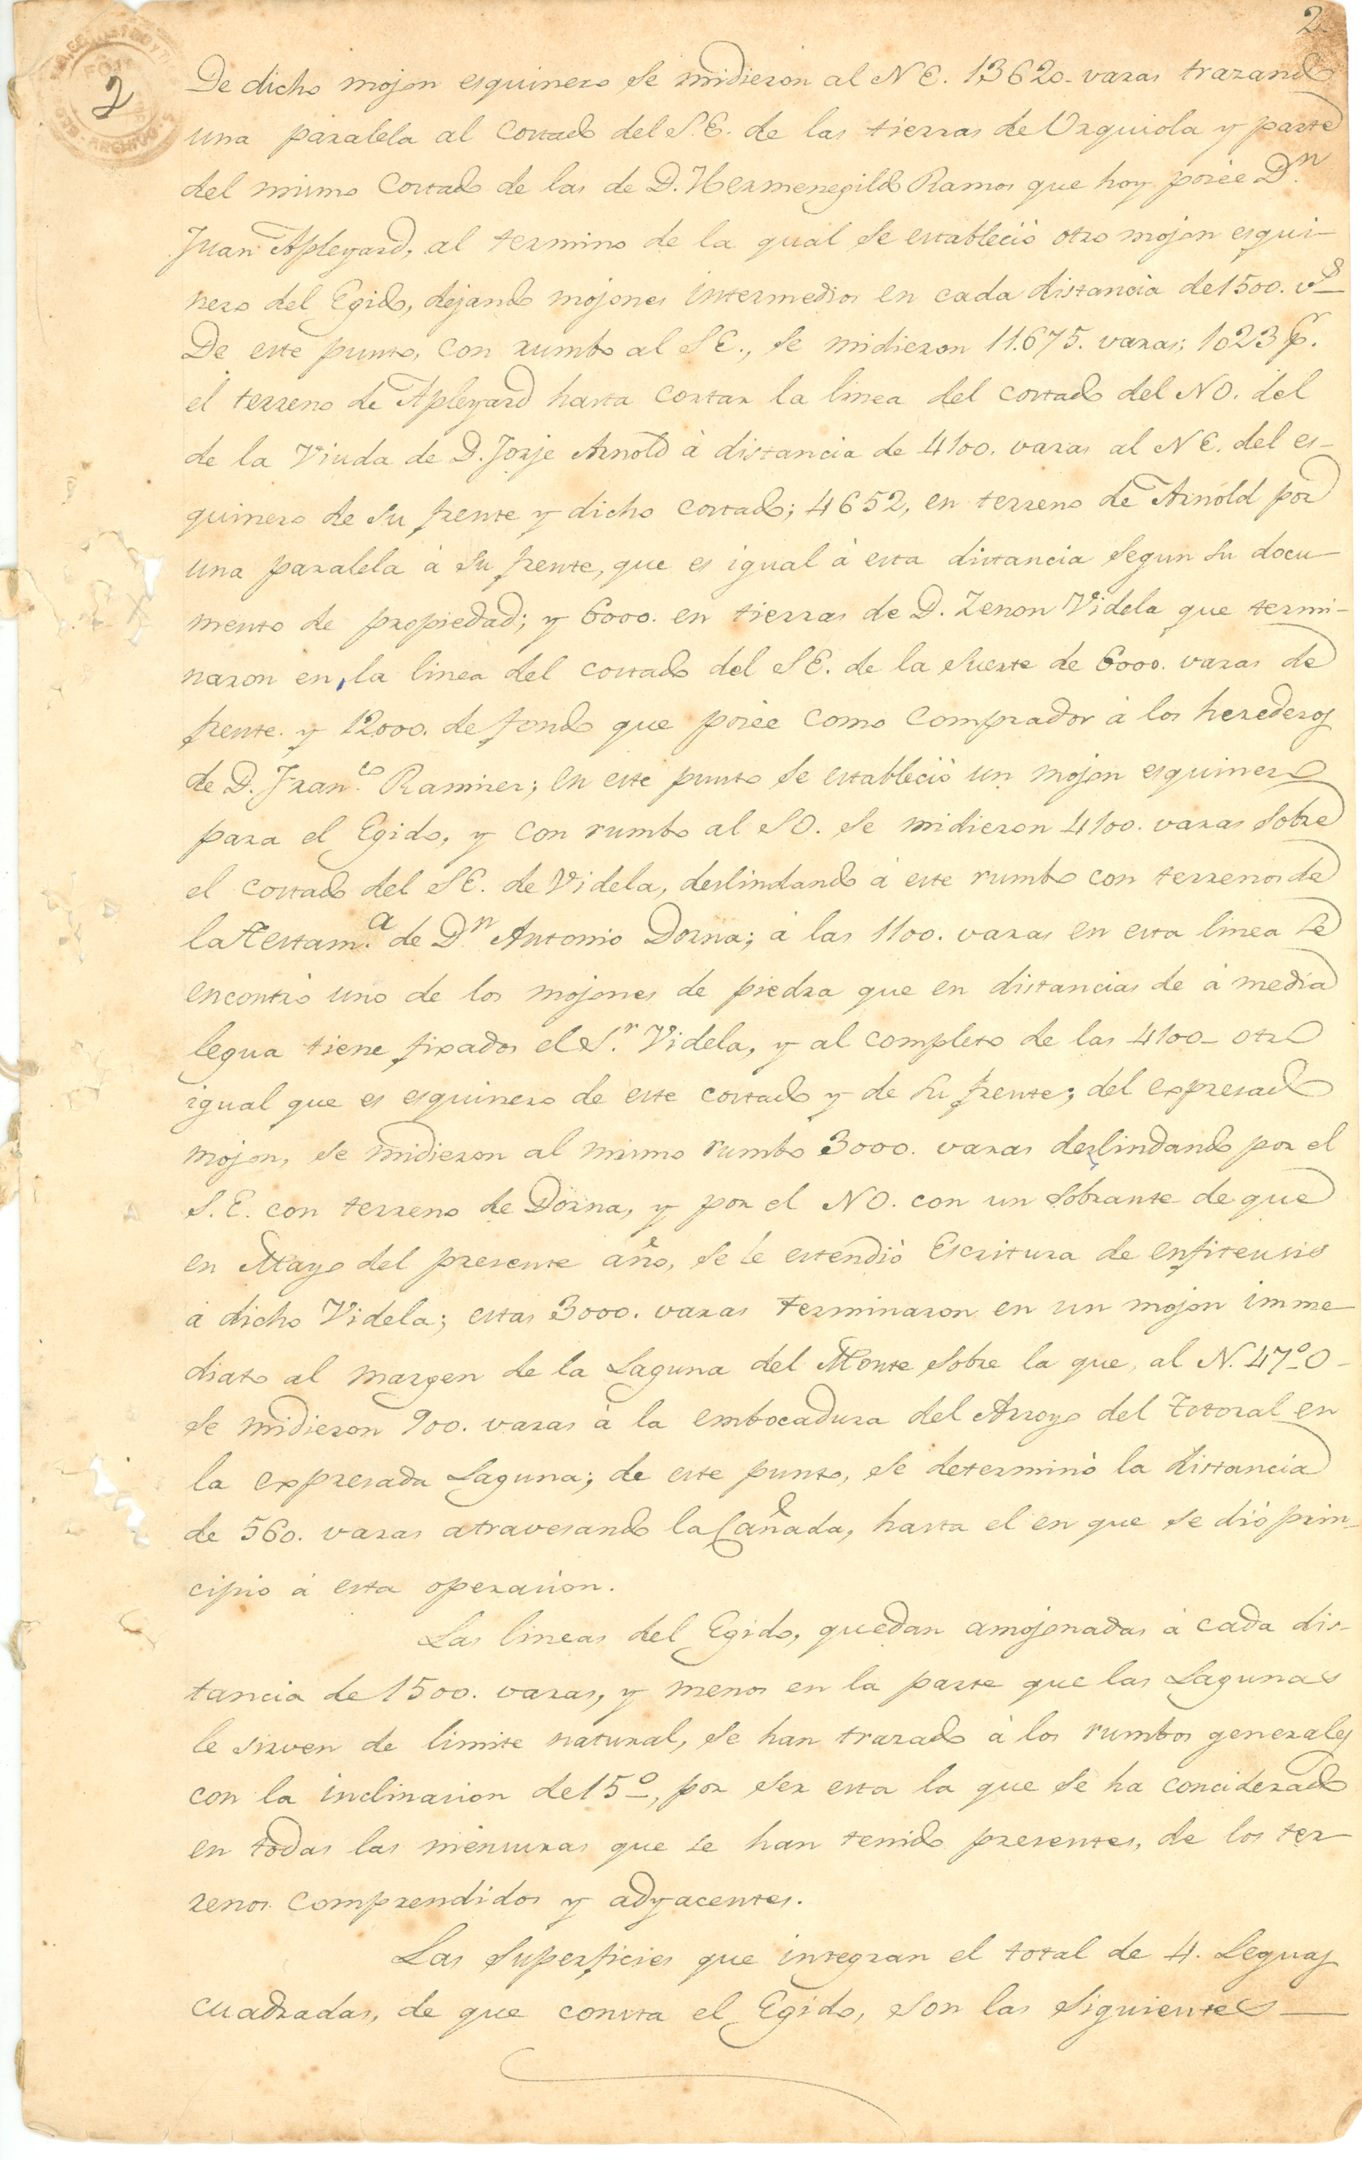 2
2
De dicho mojon esquinero se midieron al N E. 13620. varas trazando
una paralela al costado del S.E. de las tierras de Urquiola y parte
del mismo costado de las de D. Hermenegildo Ramos que hoy posée D.n
Juan Apleyard, al termino de la qual se estableció otro mojon esqui-
nero del Egido, dejando mojones intermedios en cada distancia de 1500. v.s
De este punto, con rumbo al S E., se midieron 11.675. varas; 1023 p.r
el terreno de Apleyard hasta cortar la linea del costado del NO. del
de la Viuda de D. Jorje Arnold à distancia de 4100. varas al N E. del es-
quinero de su frente y dicho costado; 4652, en terreno de Arnold por
una paralela à su frente, que es igual à esta distancia segun su docu-
mento de propiedad; y 6000. en tierras de D. Zenon Videla que termi-
naron en la linea del costado del S E. de la suerte de 6000. varas de
frente y 12000. de fondo que posée como comprador à los herederos
de D. Fran.co Ramirez; en este punto se estableció un mojon esquinero
para el Egido, y con rumbo al S O. se midieron 4100. varas sobre
el costado del S E. de Videla, deslindando à este rumbo con terrenos de
la Testam.a de D.n Antonio Dorna; à las 1100. varas en esta linea se
encontró uno de los mojones de piedra que en distancias de à media
legua tiene fixados el S.r Videla, y al completo de las 4100_ otro
igual que es esquinero de este costado y de su frente; del expresado
mojon, se midieron al mismo rumbo 3000. varas deslindando por el
S. E. con terreno de Dorna, y por el NO. con un sobrante de que
en Mayo del presente año, se le estendió Escritura de enfiteusis
à dicho Videla; estas 3000. varas terminaron en un mojon imme
diato al margen de la Laguna del Monte sobre la que, al N. 47º O_
se midieron 900. varas à la embocadura del Arroyo del Totoral en
la expresada Laguna; de este punto, se determinó la distancia
de 560. varas atravesando la Cañada, hasta el en que se dió prin-
cipio à esta operacion.
Las lineas del Egido, quedan amojonadas à cada dis-
tancia de 1500. varas, y menos en la parte que las Lagunas
le sirven de limite natural, se han trazado à los rumbos generales
con la inclinacion de 15º, por ser esta la que se ha conciderado
en todas las mensuras que se han tenido presentes, de los ter
renos comprendidos y adyacentes.
Las superficies que integran el total de 4. Leguas
cuadradas, de que consta el Egido, son las siguientes—